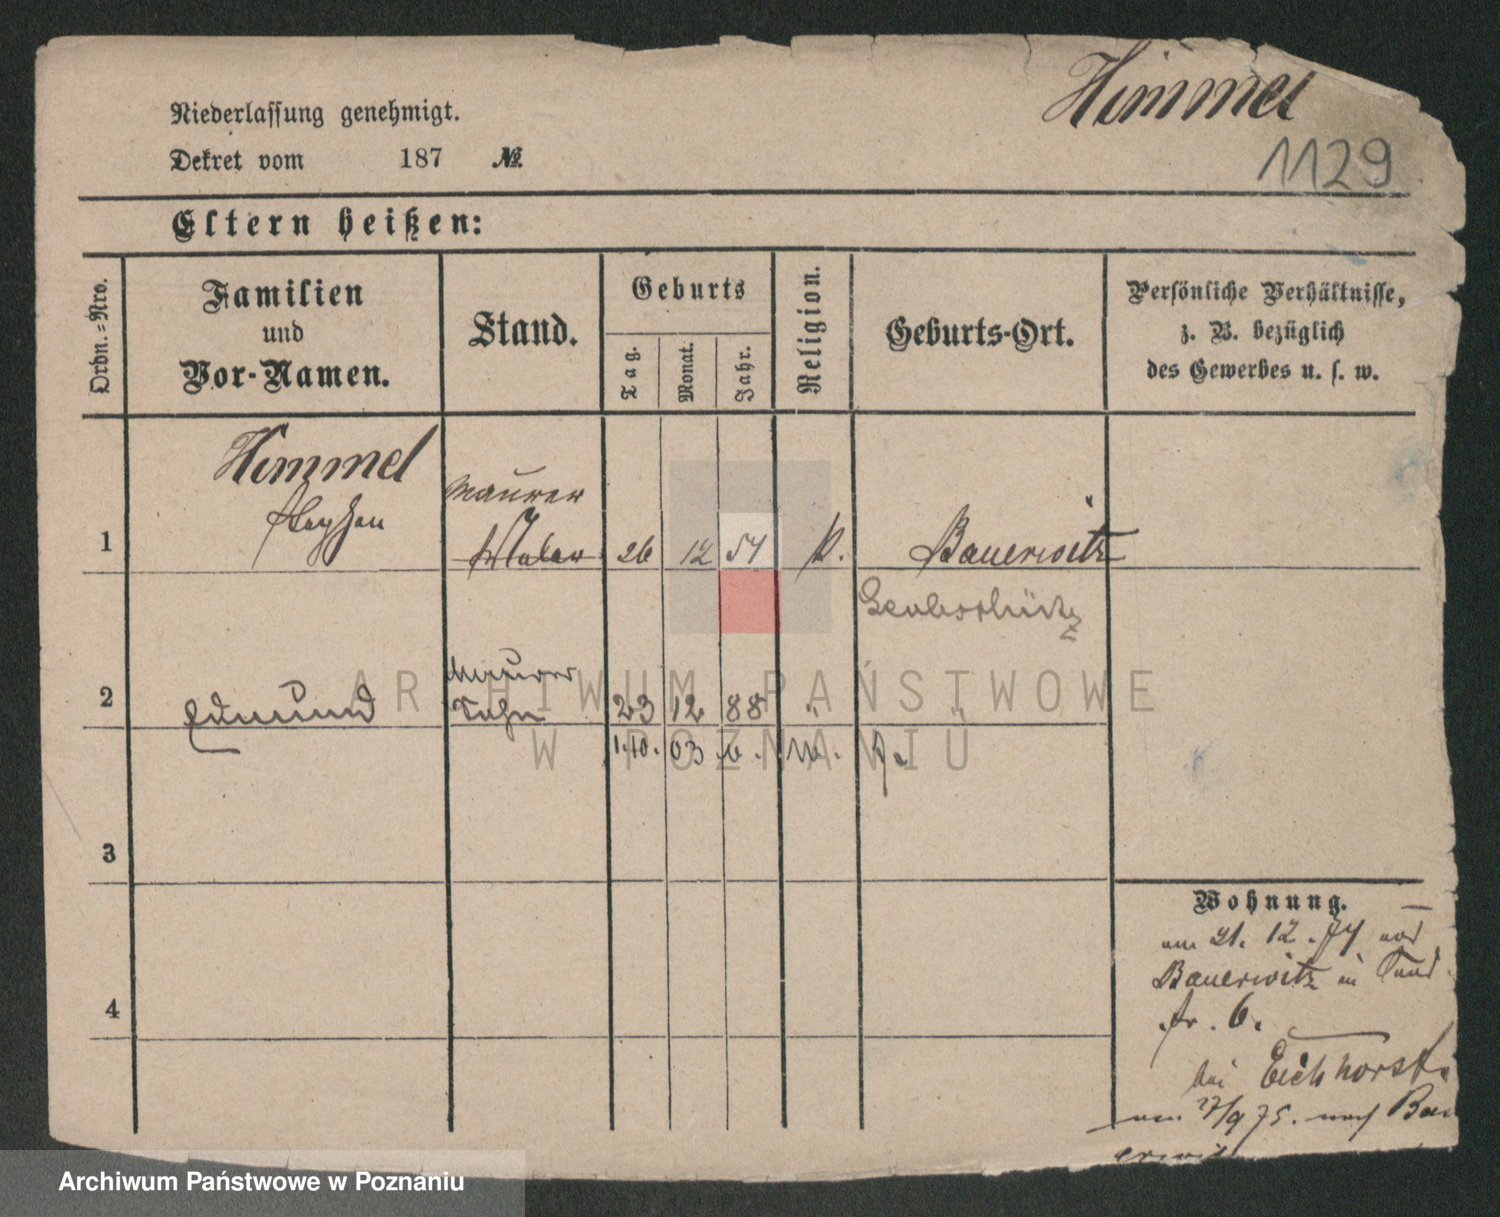 Himmel
1129
Niederlassung genehmigt.
Dekret vom 187 №
Eltern heißen:
Ordn.-Nro.
Familien und Vor-Namen.
Stand.
Geburts
Tag.
Monat.
Jahr.
Religion.
Geburts-Ort.
Persönliche Verhältnisse,
z. B. bezüglich
des Gewerbes u. s. w.
Himmel
Maurer
1 26 12 54 k. Bauerwitz
Leobschütz
Maurer
2 Edmund 23 12 88 "
1.10. 03
3
4
Wohnung.
am 21. 12. 74 von
Bauerwitz in
6.
bei Eichhorst.
am 27/9 75. nach Bau
erwitz
ARCHIWUM PAŃSTWOWE
W POZNANIU
Archiwum Państwowe w Poznaniu